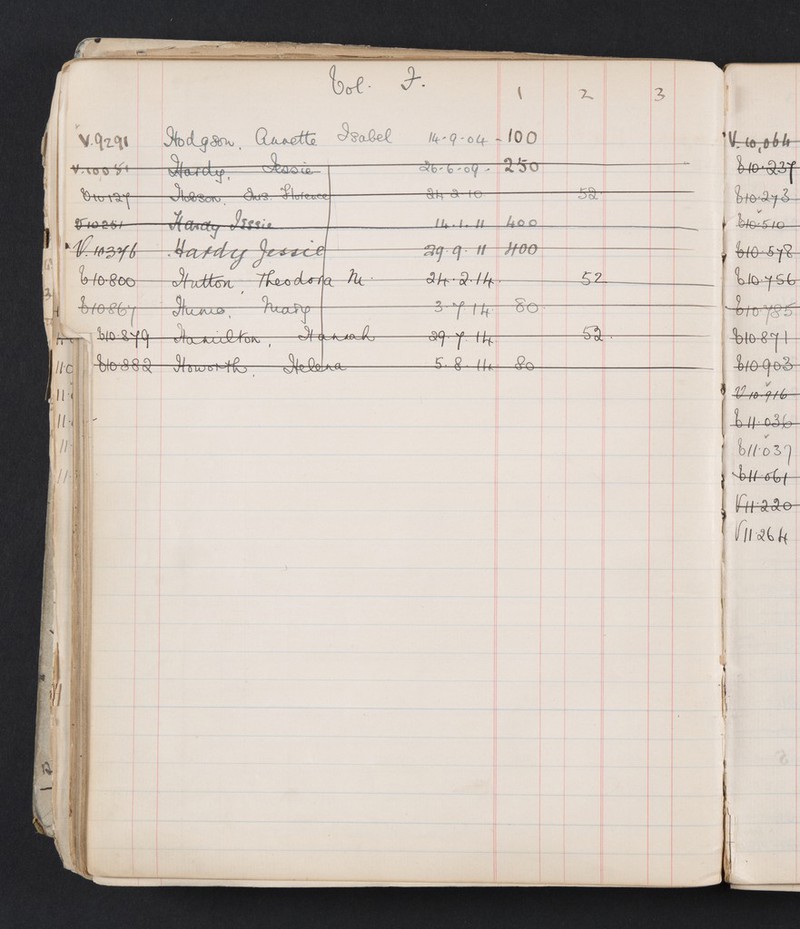 Vol. F.
1 2 3
V.9291 Hodgson, Annette Isabel 14-9-04 - 100
V.10051 Hardy, Jessie 26-6-09 - 250
V10127 Florence 24 2 10 52
V10251 Hardy Jessie 14.1.11 400
V.10376 Hardy Jessie 29.9.11 400
V10.800 Hutton, Theodora M. 24.2.14. 52
V10867 Hume, Mary 3.7.14 80
V10.879 Hamilton, Hannah 29.7.14 52.
V10.882 Howorth, Helena 5.8.14 80
V.10,064
V10.237
V10.273
V10.510
V10.578
V10.756
V10.785
V10.871
V10.903
V10.916
V11.036
V11.037
V11.061
V11.220
V11.264